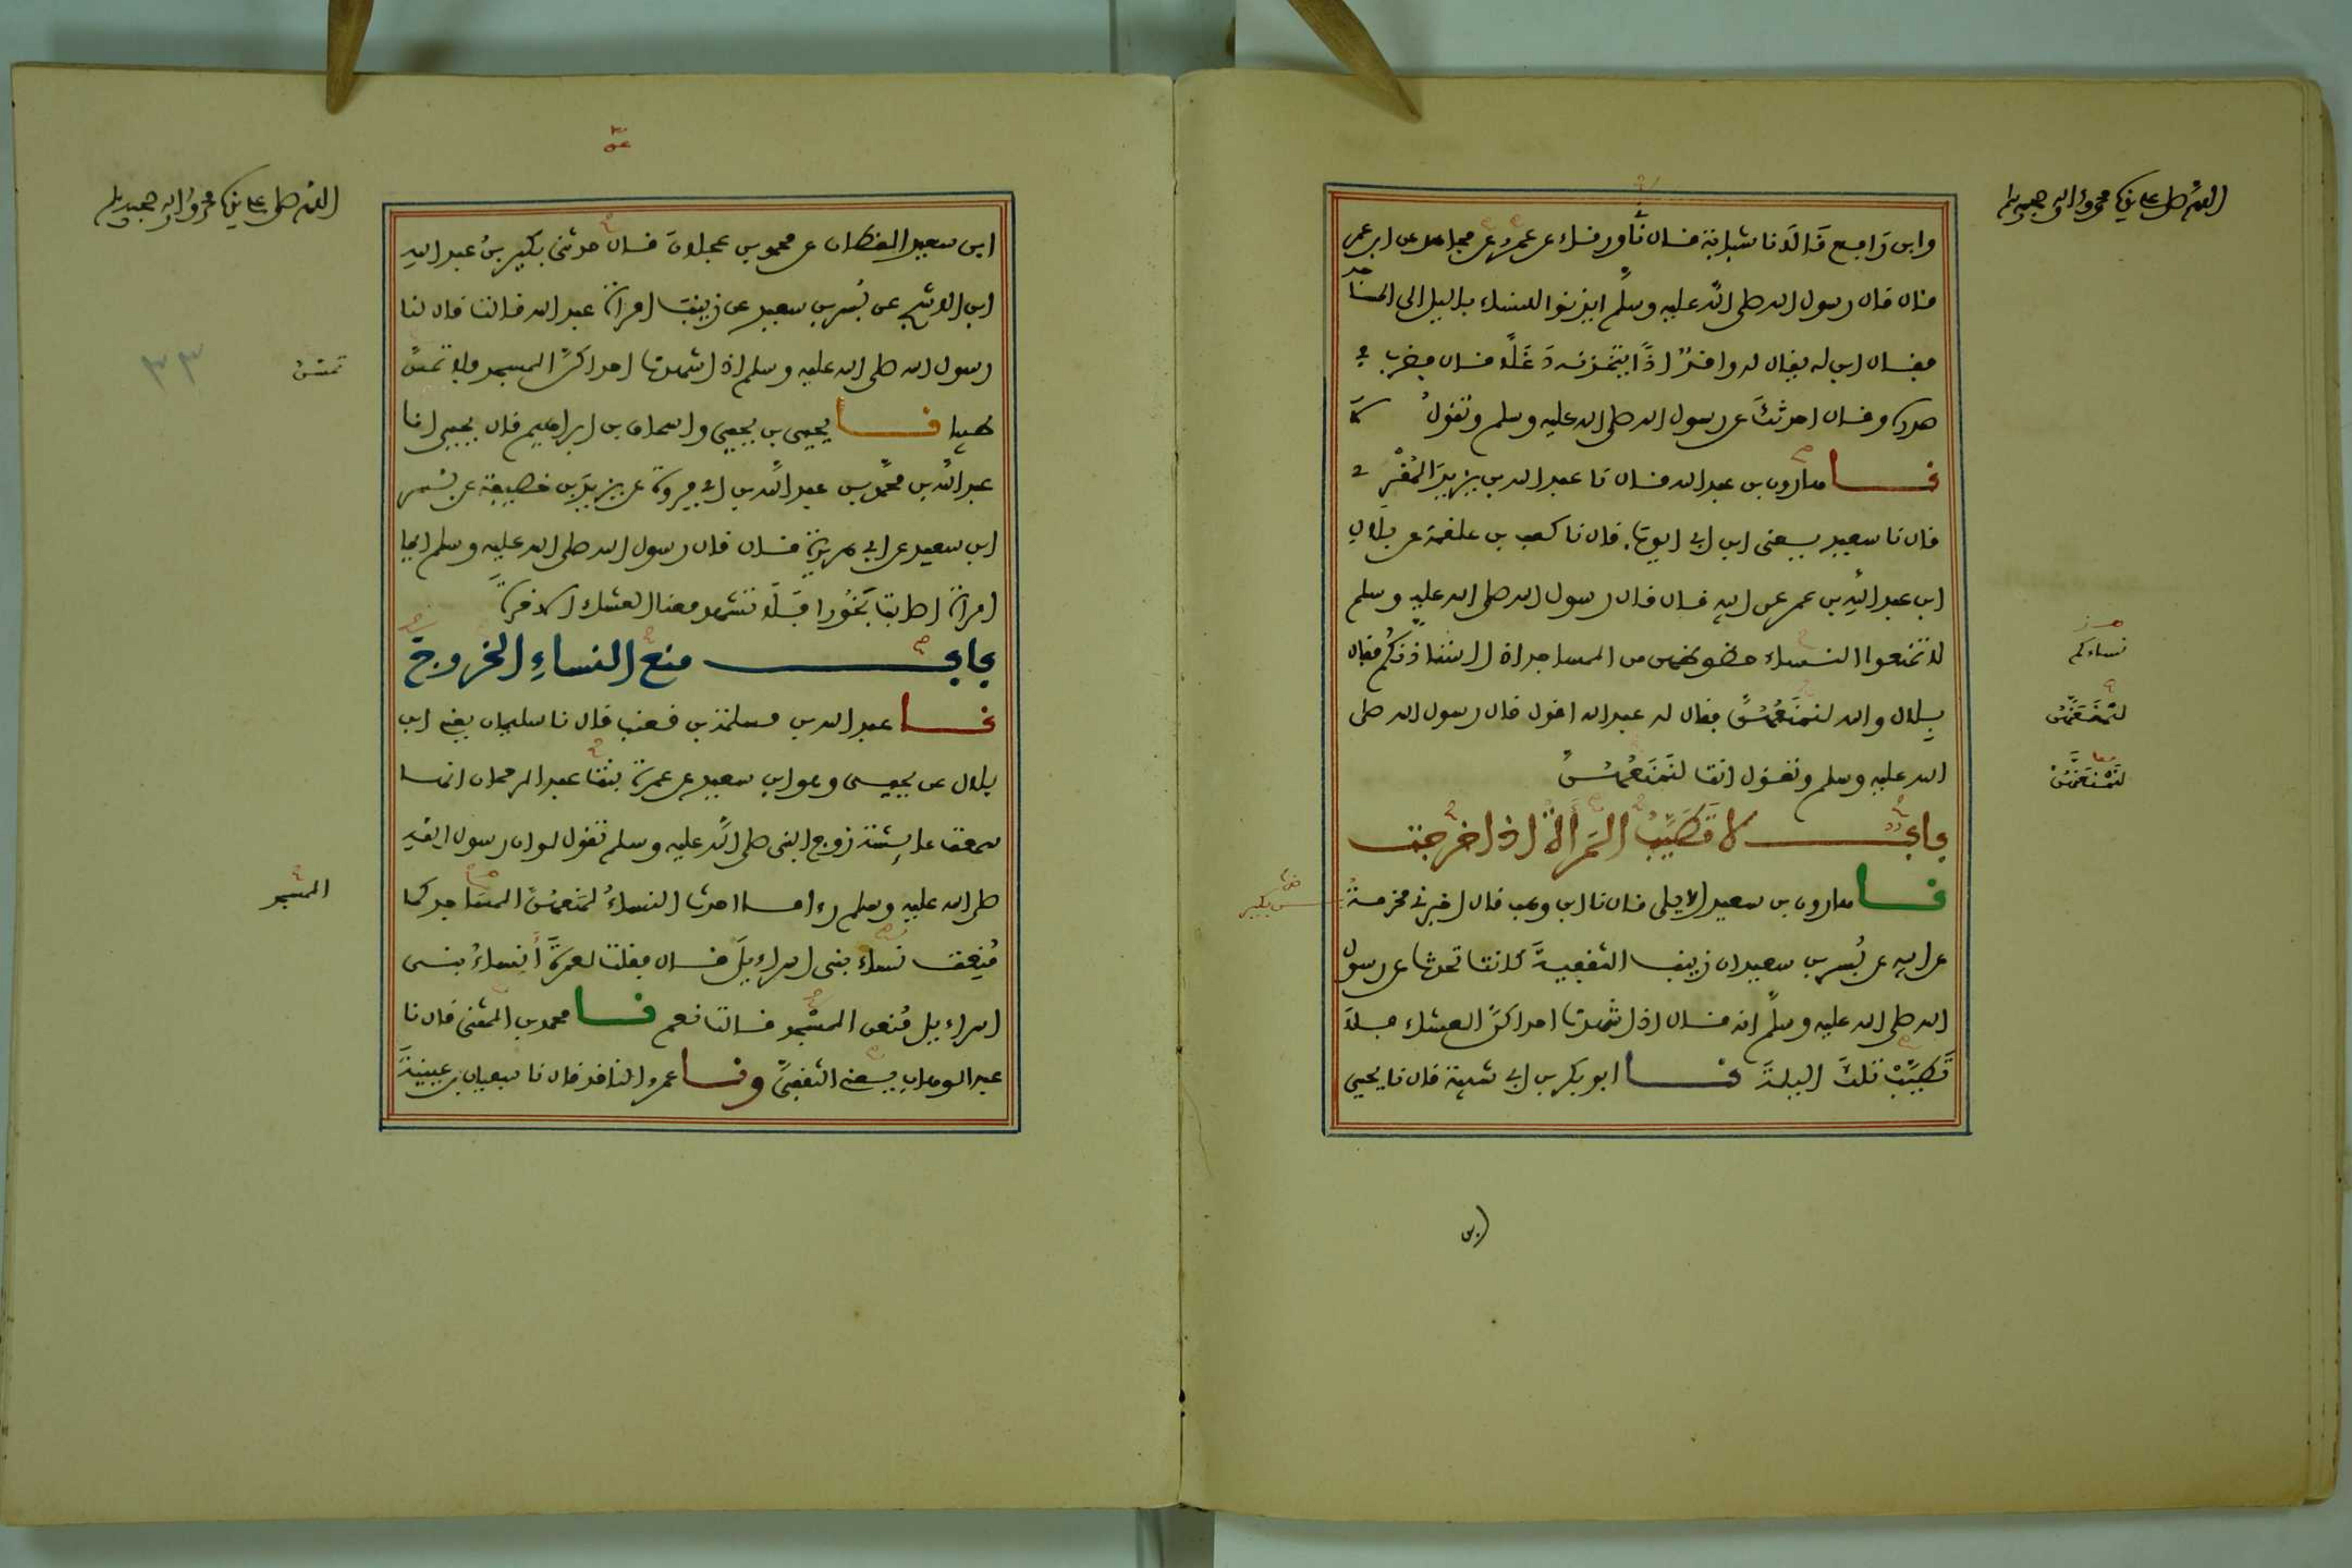 اللهم صل على سيدنا محمد وآله وصحبه وسلم
وابن رافع قالا نا شبابة قال نا ورقاء عن عمرو عن مجاهد عن ابن عمر
قال قال رسول الله صلى الله عليه وسلم ايذنوا للنساء بالليل الى المساجد
فقال ابن له يقال له واقد اذا يتخذنه دغلا قال فضرب في
صدره وقال احدثك عن رسول الله صلى الله عليه وسلم وتقول لا
نا هارون بن عبد الله قال نا عبد الله بن يزيد المقرئ
قال نا سعيد يعني ابن ابي ايوب قال نا كعب بن علقمة عن بلال
ابن عبد الله بن عمر عن ابيه قال قال رسول الله صلى الله عليه وسلم
لا تمنعوا النساء حظوظهن من المساجد اذا استاذنكم فقال
نساءكم
بلال والله لنمنعهن فقال له عبد الله اقول قال رسول الله صلى
لنمنعهن
الله عليه وسلم وتقول انت لنمنعهن
لنمنعهن
باب لا تطيب المرأة اذا خرجت
نا هارون بن سعيد الايلي قال نا ابن وهب قال اخبرني مخرمة
بن بكير
عن ابيه عن بسر بن سعيد ان زينب الثقفية كانت تحدث عن رسول
الله صلى الله عليه وسلم انه قال اذا شهدت احداكن العشاء فلا
تطيب تلك الليلة نا ابو بكر بن ابي شيبة قال نا يحيى
ابن
اللهم صل على سيدنا محمد وآله وصحبه وسلم
ابن سعيد القطان عن محمد بن عجلان قال حدثني بكير بن عبد الله
ابن الاشج عن بسر بن سعيد عن زينب امراة عبد الله قالت قال لنا
رسول الله صلى الله عليه وسلم اذا شهدت احداكن المسجد فلا تمس
تمسن
٣٣
طيبا نا يحيى بن يحيى واسحاق بن ابراهيم قال يحيى انا
عبد الله بن محمد بن عبد الله بن ابي فروة عن يزيد بن خصيفة عن بسر
ابن سعيد عن ابي هريرة قال قال رسول الله صلى الله عليه وسلم ايما
امراة اصابت بخورا فلا تشهد معنا العشاء الاخرة
باب منع النساء الخروج
نا عبد الله بن مسلمة بن قعنب قال نا سليمان يعني ابن
بلال عن يحيى وهو ابن سعيد عن عمرة بنت عبد الرحمان انها
سمعت عايشة زوج النبي صلى الله عليه وسلم تقول لو ان رسول الله
صلى الله عليه وسلم راى ما احدث النساء لمنعهن المساجد كما
المسجد
منعت نساء بني اسراءيل قال فقلت لعمرة أنساء بني
اسراءيل منعن المسجد قالت نعم نا محمد بن المثنى قال نا
عبد الوهاب يعني الثقفي ونا عمرو الناقد قال نا سفيان بن عيينة